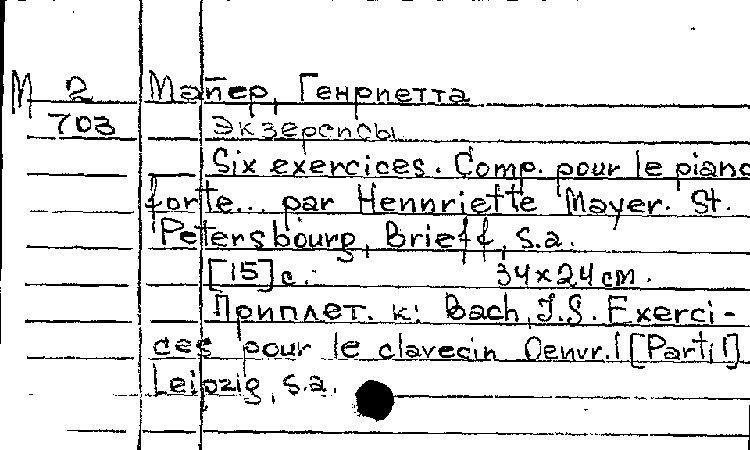 М 2 Майер, Генриетта
703 Экзерсисы
Six exercices. Comp. pour le piano
forte... par Hennriette Mayer. St.
Petersbourg, Brieff, s.a.
[15] с.: 34x24 см.
Приплет. к: Bach, J.S. Exerci-
ces pour le clavecin Oeuvr. I [Parti I]
Leipzig, s.a.